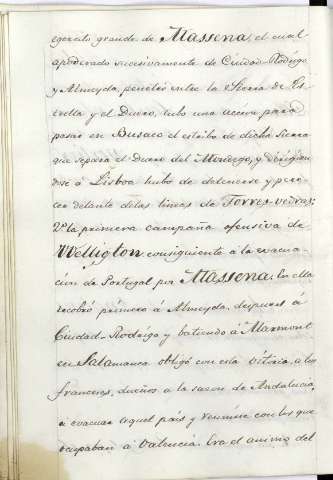 egercito grande de Massena, el cual
apoderado sucesivamente de Ciudad-Rodrigo
y Almeyda, penetró entre la Sierra de Es-
trella y el Duero, tubo una accion para
pasar en Busaco el estribo de dicha Sierra
que separa el Duero del Mondego, y dirigien
dose á Lisboa hubo de detenerse y pere-
cer delante de las lineas de Torres-vedras;
2ª la primera campaña ofensiva de
Wellington consiguiente á la evacua-
cion de Portugal por Massena. En ella
recobró primero á Almeyda, despues á
Ciudad-Rodrigo y batiendo á Marmont
en Salamanca obligó con esta vitoria, a los
franceses, dueños a la sazon de Andalucia,
á evacuar aquel país y reunirse con los que
ocupaban á Valencia. Era el animo del